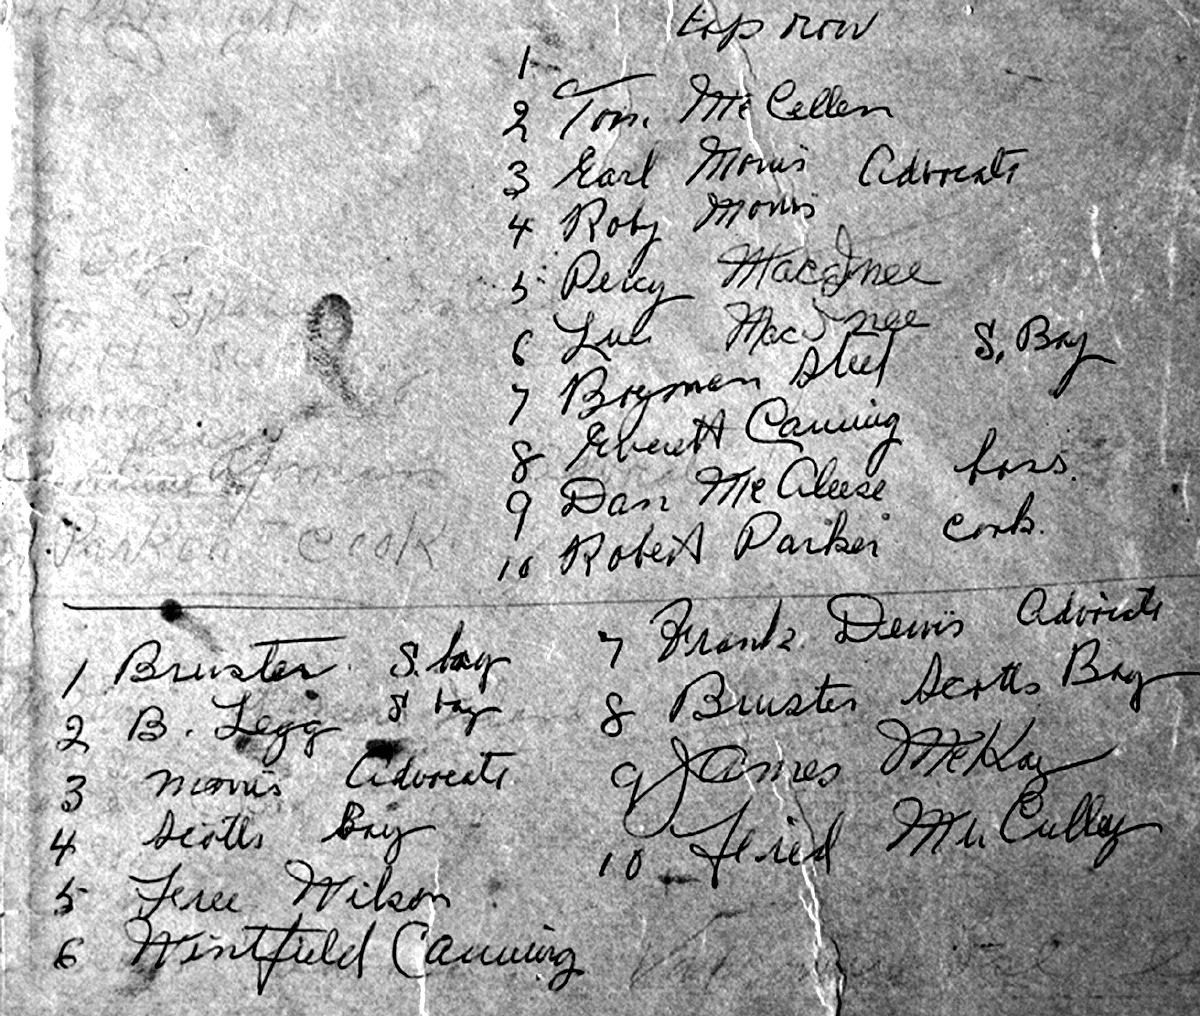 top row
1
2 Tom McCellen
3 Earl Morris Advocate
4 Roby Morris
5 Percy MacInee
6 MacInee
7 Boyman Steel S. Bay
8 Everett Canning
9 Dan McAleese boss.
10 Robert Parker cook.
1 Bruster S. bay
2 B. Legg S bay
3 morris Advocate
4 Scotts Bay
5 Wilson
6 Wintfield Canning
7 Frank Dewis Advocate
8 Bruster Scotts Bay
9 James McKay
10 McCulley
Cook